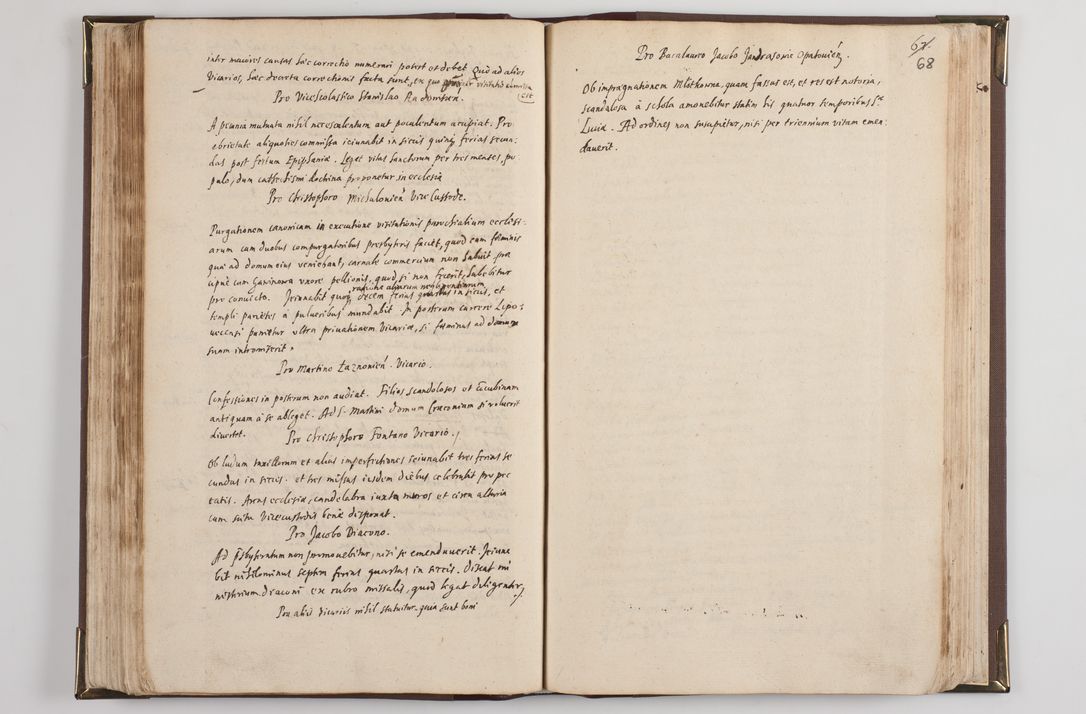 inter maiores causas hæc correctio numerari potest et debet. Quo ad alios
Vicarios, hæc decreta correctionis facta sunt, ex quo visitatio
est
Pro ViceScolastico Stanislao
A pecunia mutuata nihil nec esculentum aut poculentum accipiat. Pro
ebrietate aliquoties commissa ieiunabit in siccis quinq ferias secun
das post festum Epiphaniæ. Leget vitas sanctorum per tres menses, po
pulo, dum cathechismi doctrina proponetur in ecclesia
Pro Christophoro Michalonien Vice Custode.
Purgationem canonicam in executione visitationis parochialium ecclesi
arum cum duobus compurgatoribus presbyteris faciet, quod cum fæminis
quæ ad domum eius veniebant, carnale commercium non habuit
cum uxore pellionis, quod si non fecerit, habebitur
pro convicto. Ieiunabit decem ferias quartas in siccis, et
ratione aliarum negligentiarum
templi parietes à pulueribus mundabit. In posterum carcere Lipo
uecensi punietur ultra priuationem Vicariæ, si fæminas ad domum
suam intromiserit.
Pro Martino Łaznonien Vicario.
Confessiones in posterum non audiat. Filios scandolosos et Cōcubinam
antiquam à se ableget. Ad S. Martini domum Cracouiam si voluerit
diuertet.
Pro Christophoro Fontano Vicario.
Ob ludum taxillorum et alias imperfectiones ieiunabit tres ferias se
cundas in siccis. et tres missas iisdem diebus celebrabit pro pec
catis. Areas ecclesiæ, candelabra iuxta muros et circa altaria
cum scitu Vicecustodis bene disponat.
Pro Jacobo Diacono.
Ad psbyteratum non promouebitur, nisi se emendauerit. Ieiuna
bit nihilominus septem ferias quartas in siccis. Discat mi
nisterium diaconi ex rubro missalis, quod legat diligenter.
Pro aliis vicariis nihil statuitur quia sunt boni
67
68
Pro Bacalaureo Jacobo Jandrasowic Opatouien
Ob imprægnationem, quam fassus est, et res est notoria,
scandalosa à schola amouebitur statim his quatuor temporibus S.
Luciæ. Ad ordines non suscipietur, nisi per triennium vitam emen
dauerit.